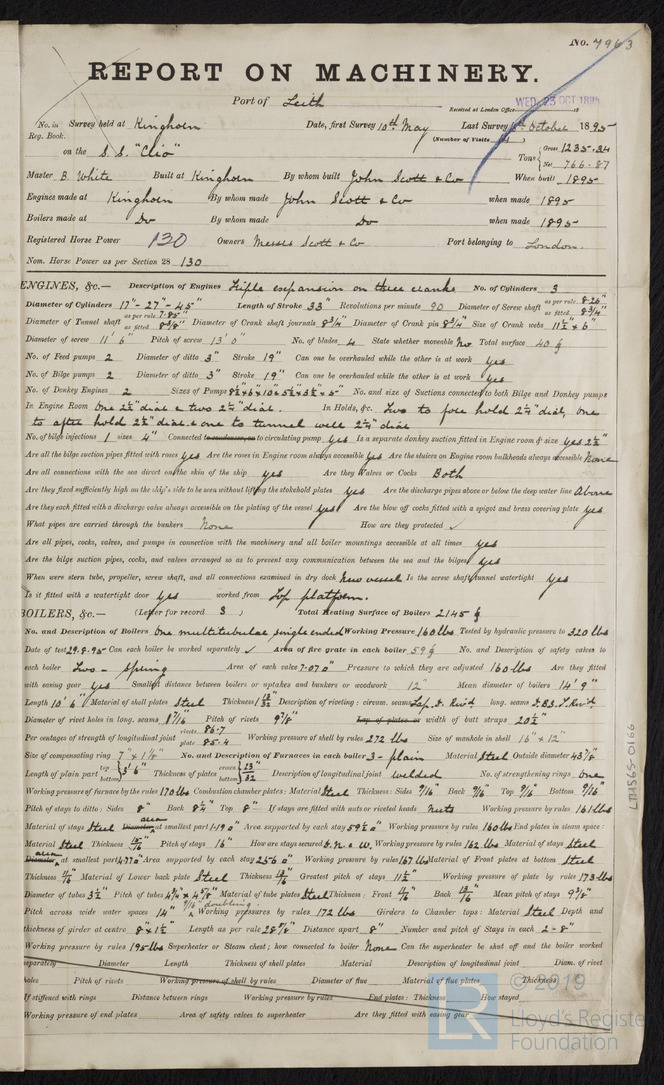 No. 7963
REPORT ON MACHINERY.
Port of Leith
Received at London Office WED. 23 OCT 1895
No. in Survey held at Kinghorn Date, first Survey 10th May Last Survey October 1895
Reg. Book. (Number of Visits )
on the S.S. "Clio" Tons Gross 1235.34 Net 766.87
Master B. White Built at Kinghorn By whom built John Scott & Co When built 1895
Engines made at Kinghorn By whom made John Scott & Co when made 1895
Boilers made at Do By whom made Do when made 1895
Registered Horse Power 130 Owners Messrs Scott & Co Port belonging to London.
Nom. Horse Power as per Section 28 130
ENGINES, &c.— Description of Engines Triple expansion on three cranks No. of Cylinders 3
Diameter of Cylinders 17"-27"-45" Length of Stroke 33" Revolutions per minute 90 Diameter of Screw shaft as per rule 8.26" as fitted 8 3/4"
Diameter of Tunnel shaft as per rule 7.85" as fitted 8 3/8" Diameter of Crank shaft journals 8 3/4" Diameter of Crank pin 8 3/4" Size of Crank webs 11 1/2" x 6"
Diameter of screw 11' 6" Pitch of screw 13' 0" No. of blades 4 State whether moveable No Total surface 40
No. of Feed pumps 2 Diameter of ditto 3" Stroke 19" Can one be overhauled while the other is at work yes
No. of Bilge pumps 2 Diameter of ditto 3" Stroke 19" Can one be overhauled while the other is at work yes
No. of Donkey Engines 2 Sizes of Pumps No. and size of Suctions connected to both Bilge and Donkey pumps
In Engine Room One 2 1/2" dia & two 2 1/4" dia. In Holds, &c. Two to fore hold 2 1/4" dia, one
to after hold 2 1/2" dia & one to tunnel well 2 1/4" dia
No. of bilge injections 1 sizes 4" Connected to condenser, or to circulating pump yes Is a separate donkey suction fitted in Engine room & size yes 2 1/2"
Are all the bilge suction pipes fitted with roses yes Are the roses in Engine room always accessible yes Are the sluices on Engine room bulkheads always accessible None
Are all connections with the sea direct on the skin of the ship yes Are they Valves or Cocks Both
Are they fixed sufficiently high on the ship's side to be seen without lifting the stokehold plates yes Are the discharge pipes above or below the deep water line Above
Are they each fitted with a discharge valve always accessible on the plating of the vessel yes Are the blow off cocks fitted with a spigot and brass covering plate yes
What pipes are carried through the bunkers None How are they protected ✓
Are all pipes, cocks, valves, and pumps in connection with the machinery and all boiler mountings accessible at all times yes
Are the bilge suction pipes, cocks, and valves arranged so as to prevent any communication between the sea and the bilges yes
When were stern tube, propeller, screw shaft, and all connections examined in dry dock New vessel Is the screw shaft tunnel watertight yes
Is it fitted with a watertight door yes worked from Top platform.
BOILERS, &c.— (Letter for record S ) Total Heating Surface of Boilers 2145
No. and Description of Boilers One multitubular single ended Working Pressure 160 lbs Tested by hydraulic pressure to 320 lbs
Date of test 29.9.95 Can each boiler be worked separately ✓ Area of fire grate in each boiler 59 No. and Description of safety valves to
each boiler Two - Spring Area of each valve 7.07 Pressure to which they are adjusted 160 lbs Are they fitted
with easing gear yes Smallest distance between boilers or uptakes and bunkers or woodwork 12" Mean diameter of boilers 14' 9"
Length 10' 6" Material of shell plates Steel Thickness 1 3/32 Description of riveting: circum. seams Lap. D. Rivd long. seams D.B.S. T. Rivd.
Diameter of rivet holes in long. seams 1 1/16 Pitch of rivets 7 7/8" Lap of plates or width of butt straps 20 1/2"
Per centages of strength of longitudinal joint rivets 86.7 plate 85.4 Working pressure of shell by rules 272 lbs Size of manhole in shell 16" x 12"
Size of compensating ring 7" x 1 1/8" No. and Description of Furnaces in each boiler 3 - plain Material Steel Outside diameter 43 7/8"
Length of plain part top bottom 3' 6" Thickness of plates crown bottom 23/32 Description of longitudinal joint welded No. of strengthening rings One
Working pressure of furnace by the rules 170 lbs Combustion chamber plates: Material Steel Thickness: Sides 9/16" Back 9/16" Top 9/16" Bottom 9/16"
Pitch of stays to ditto: Sides 8" Back 8 1/4" Top 8" If stays are fitted with nuts or riveted heads Nuts Working pressure by rules 161 lbs
Material of stays Steel Diameter area at smallest part 1.19 Area supported by each stay 59 Working pressure by rules 160 lbs End plates in steam space:
Material Steel Thickness 15/16 Pitch of stays 16" How are stays secured D.N. & W. Working pressure by rules 162 lbs Material of stays Steel
Diameter area at smallest part 4.77 Area supported by each stay 256 Working pressure by rules 167 lbs Material of Front plates at bottom Steel
Thickness 11/16 Material of Lower back plate Steel Thickness Greatest pitch of stays 11 1/2" Working pressure of plate by rules 173 lbs
Diameter of tubes 3 1/2" Pitch of tubes 4 3/4" x 4 5/8" Material of tube plates Steel Thickness: Front 11/16 Back 13/16 Mean pitch of stays 9 3/8"
9/16" doubling.
Pitch across wide water spaces 14" Working pressures by rules 172 lbs Girders to Chamber tops: Material Steel Depth and
thickness of girder at centre 8" x 1 1/2" Length as per rule 28 7/8" Distance apart 8" Number and pitch of Stays in each 2 - 8"
Working pressure by rules 195 lbs Superheater or Steam chest; how connected to boiler None Can the superheater be shut off and the boiler worked
separately Diameter Length Thickness of shell plates Material Description of longitudinal joint Diam. of rivet
holes Pitch of rivets Working pressure of shell by rules Diameter of flue Material of flue plates Thickness
If stiffened with rings Distance between rings Working pressure by rules End plates: Thickness How stayed
Working pressure of end plates Area of safety valves to superheater Are they fitted with easing gear
LTH1565-0166
LR
© 2019
Lloyd's Register
Foundation